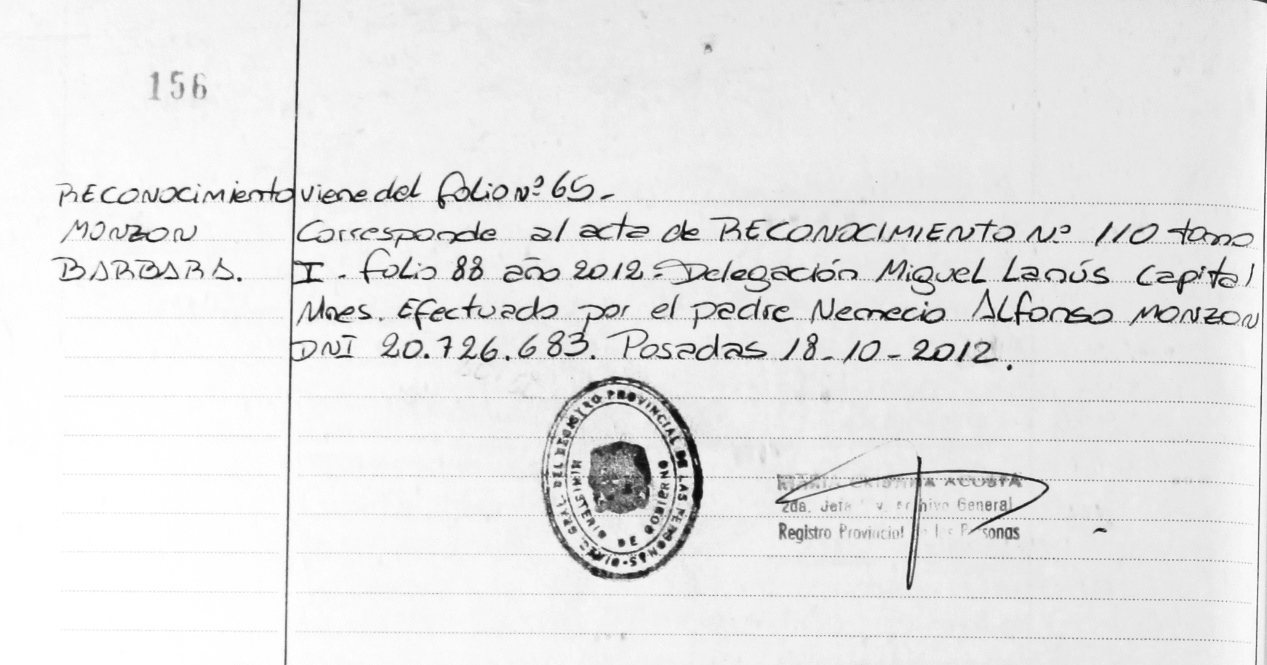 156
RECONOCIMIENTO viene del folio Nº 65.-
MONZON Corresponde al acta de RECONOCIMIENTO Nº 110 tomo
BARBARA. I - folio 88 año 2012 - Delegación Miguel Lanús Capital
Mnes. Efectuado por el padre Nemecio Alfonso MONZON
DNI 20.726.683. Posadas 18-10-2012.
REGISTRO PROVINCIAL DE LAS PERSONAS - DIREC. GRAL. DEL
MINISTERIO DE GOBIERNO
MARIA CRISTINA ACOSTA
2da. Jefa General
Registro Provincial de las Personas